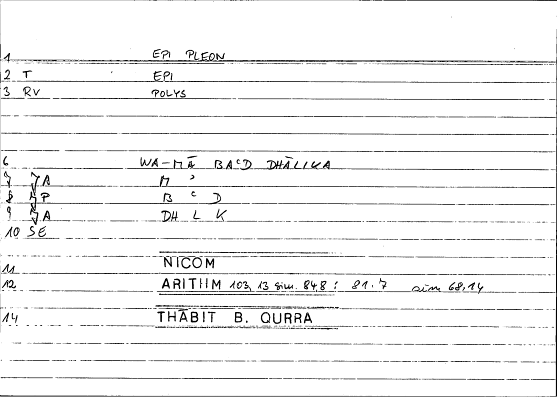 1 EPI PLEON
2 T EPI
3 RV POLYS
6 WA-MĀ BAʿD DHĀLIKA
7 √A M ʾ
8 √P B ʿ D
9 √A DH L K
10 SE
11 NICOM
12 ARITHM 103, 13 sim. 84,8 ; 81.7 sim 68,14
14 THĀBIT B. QURRA